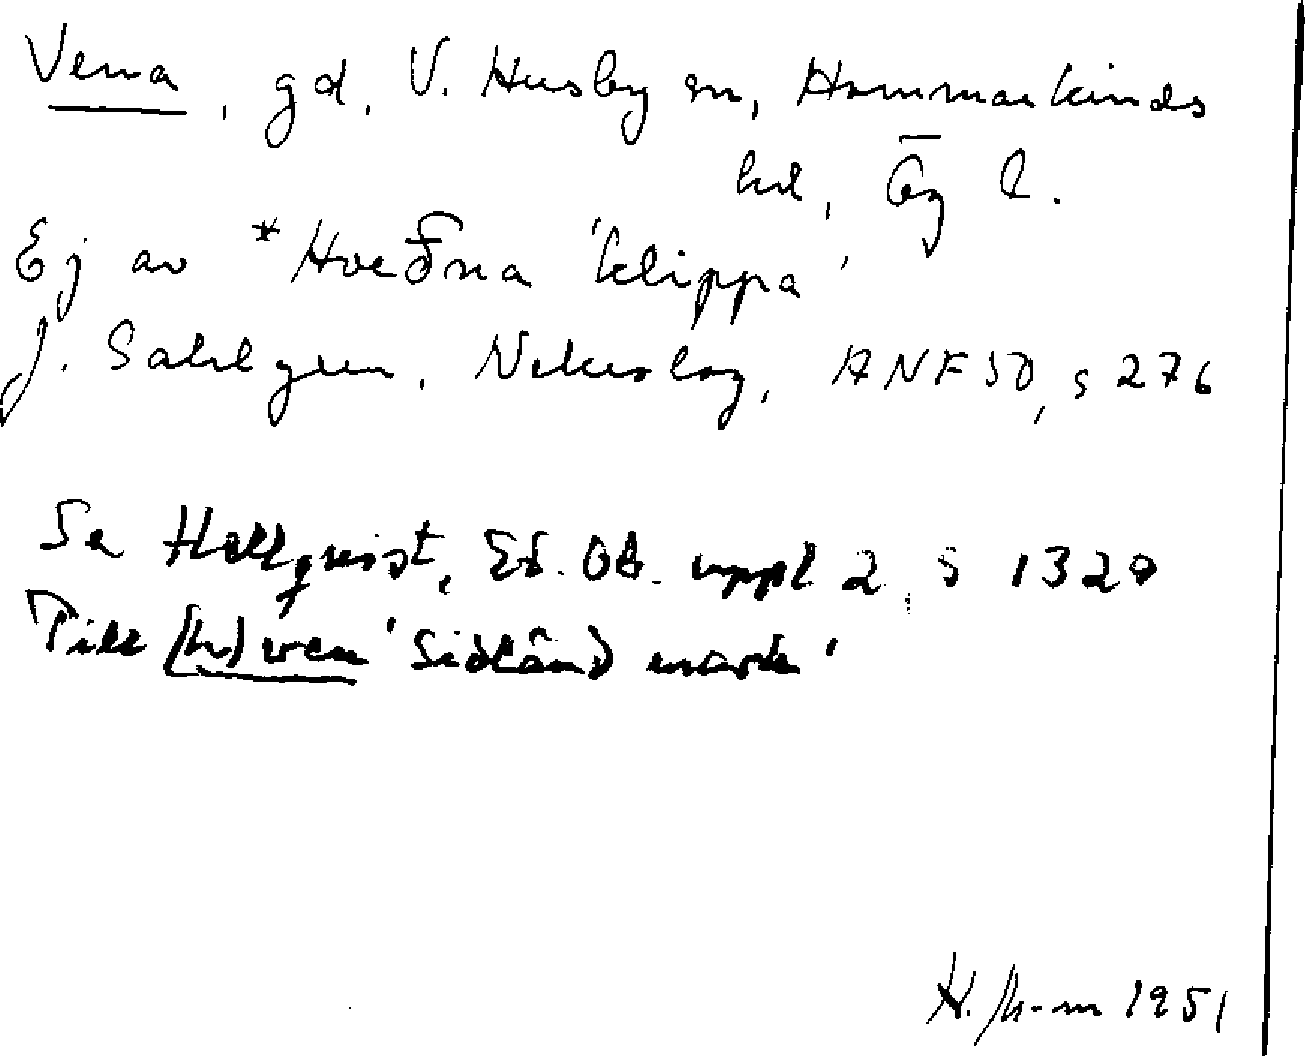 Vema, gd, V. Husby sn, Hammarkinds
hd, Ög l.
Ej av *Hveðna 'klippa'
J. Sahlgren. Nekrolog, ANF 50, s 276
Se Hellquist, Et. Ob. uppl 2, s 1320
Till (h)ven 'Sidländ mark'
1951